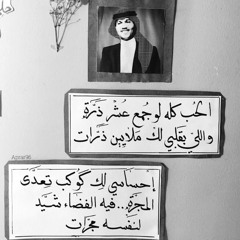 الحب كله لو جمع عشر ذرة
واللي بقلبي لك ملايين ذرات
إحساسي لك كوكب تعدى
المجرة.. فيه الفضاء شيد
لنفسه مجرات